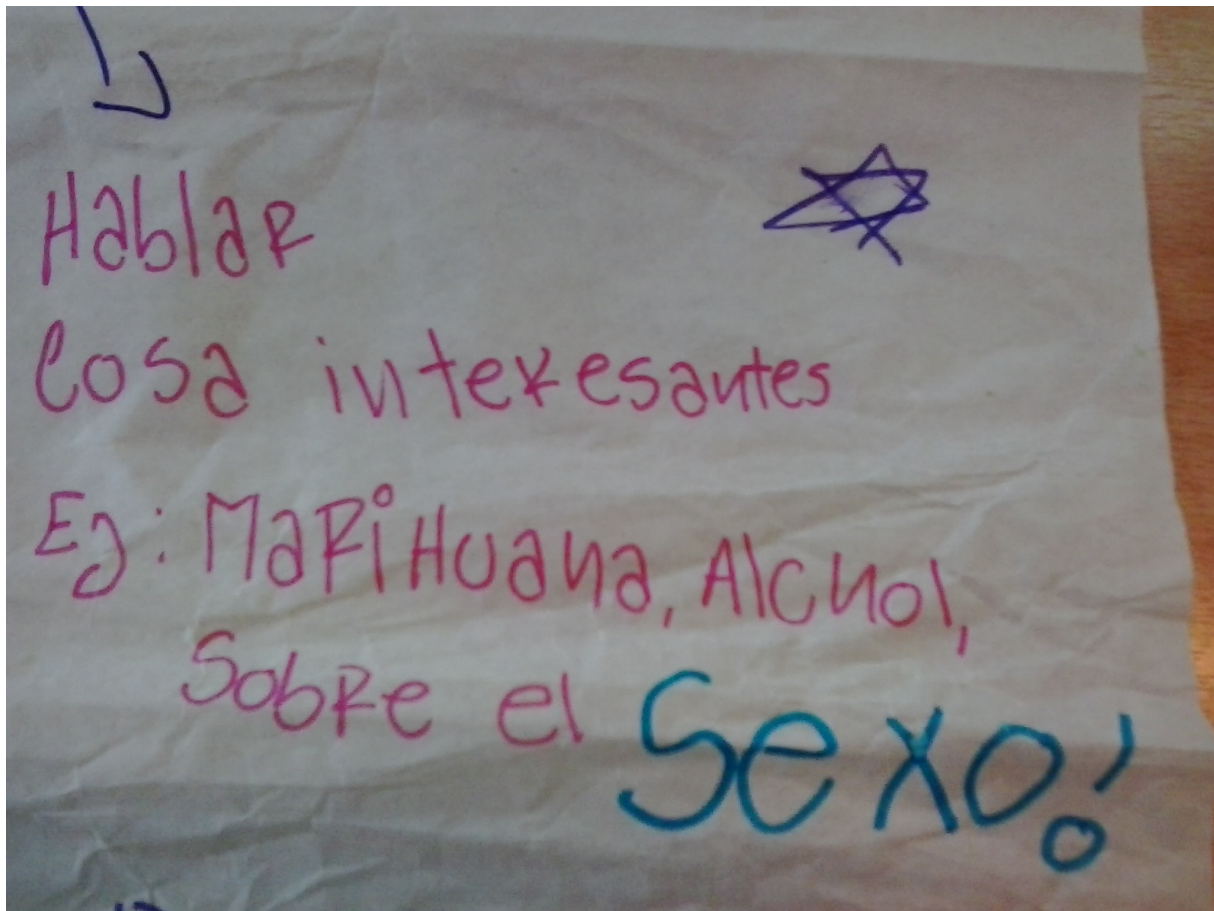 Hablar
Cosa interesantes
Ej: MaRiHuana, Alchol,
SobRe el Sexo!